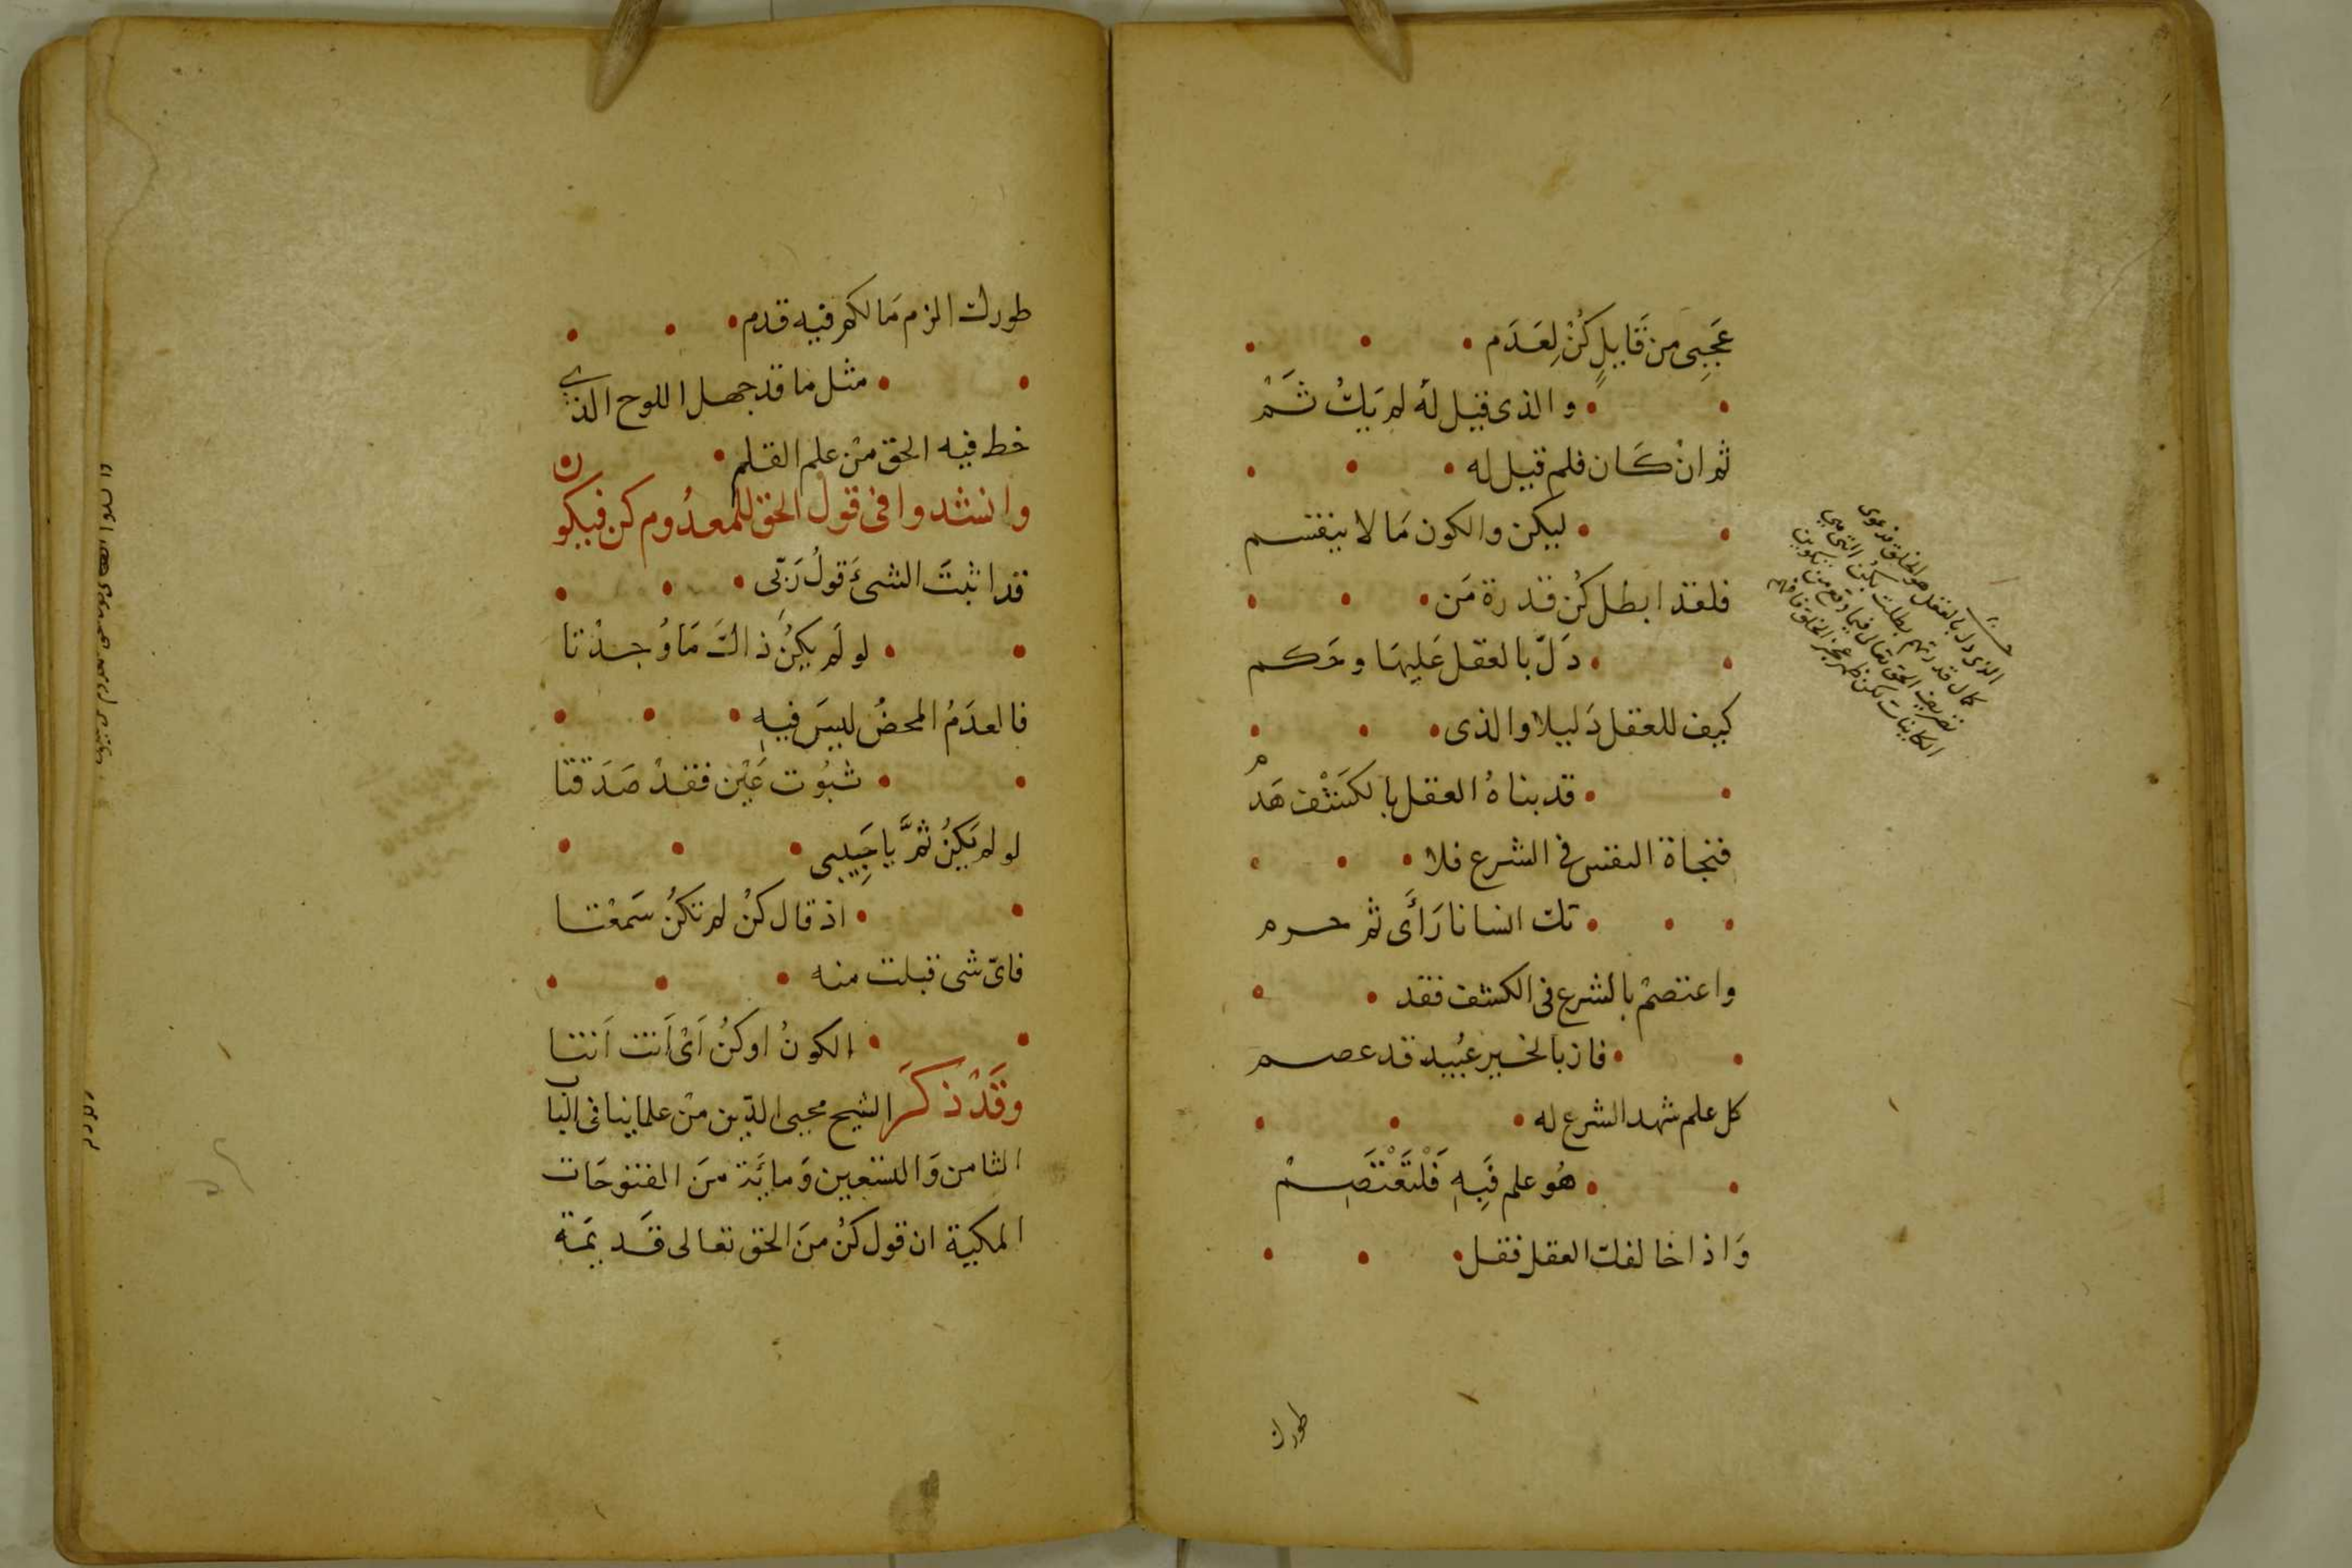 عَجَبِى من قَايلٍ كُنْ لِعَدَم
والذى قيل لهُ لم يَكُ ثَمْ
ثم انْ كَان فلم قيل له
ليكن والكون مَا لا ينقسم
فلقد ابطل كُن قدرة مَن
دَلَّ بالعقل عَليهَا وحَكم
كيف للعقل دَليلا والذى
قد بناهُ العقل بالكَشْف هَدم
فنجاة النفس فى الشرع فلا
تك انسانا رَأَى ثم حرم
واعتصمْ بالشرع فى الكشف فقد
فاز بالخير عُبيد قد عصم
كل علم شهد الشرع له
هُو علم فَبِهِ فَلْتَعْتَصِمْ
وَاذا خالفك العقل فقل
طورك
الذى دل بالعقل هو الخلق فدعوى
كمال قدرتهم بطلت بكن التى هى
تصريف الحق تعالى فيما وقع من تكوين
الكاينات لكن ظهر عجز الخلق فافهم
طورك الزم مَا لكم فيه قدم
مثل ما قد جهل اللوح الذي
خط فيه الحق مْن علم القلم
وانشدوا فى قول الحق للمعدُوم كن فيكون
قد اثبتَ الشئَ قولُ رَبِّى
لو لَم يكُن ذاكَ مَا وُجدْتا
فالعدَمُ المحضُ ليسَ فيهِ
ثبُوت عَيْن فقدْ صَدَقتا
لو لم يَكُنْ ثمَّ يا حَبِيبى
اذ قال كنْ لم تكُن سَمعْتا
فاىّ شى قبلت منه
الكونُ اوكنُ اَىْ اَنت اَنتا
وقَدْ ذكَر الشيخ محيى الدّين منْ علماينا فى الباب
الثامن وَالتسعين وَمايَة منَ الفتوحَات
المكية ان قول كنُ منَ الحق تعالى قَد يمة